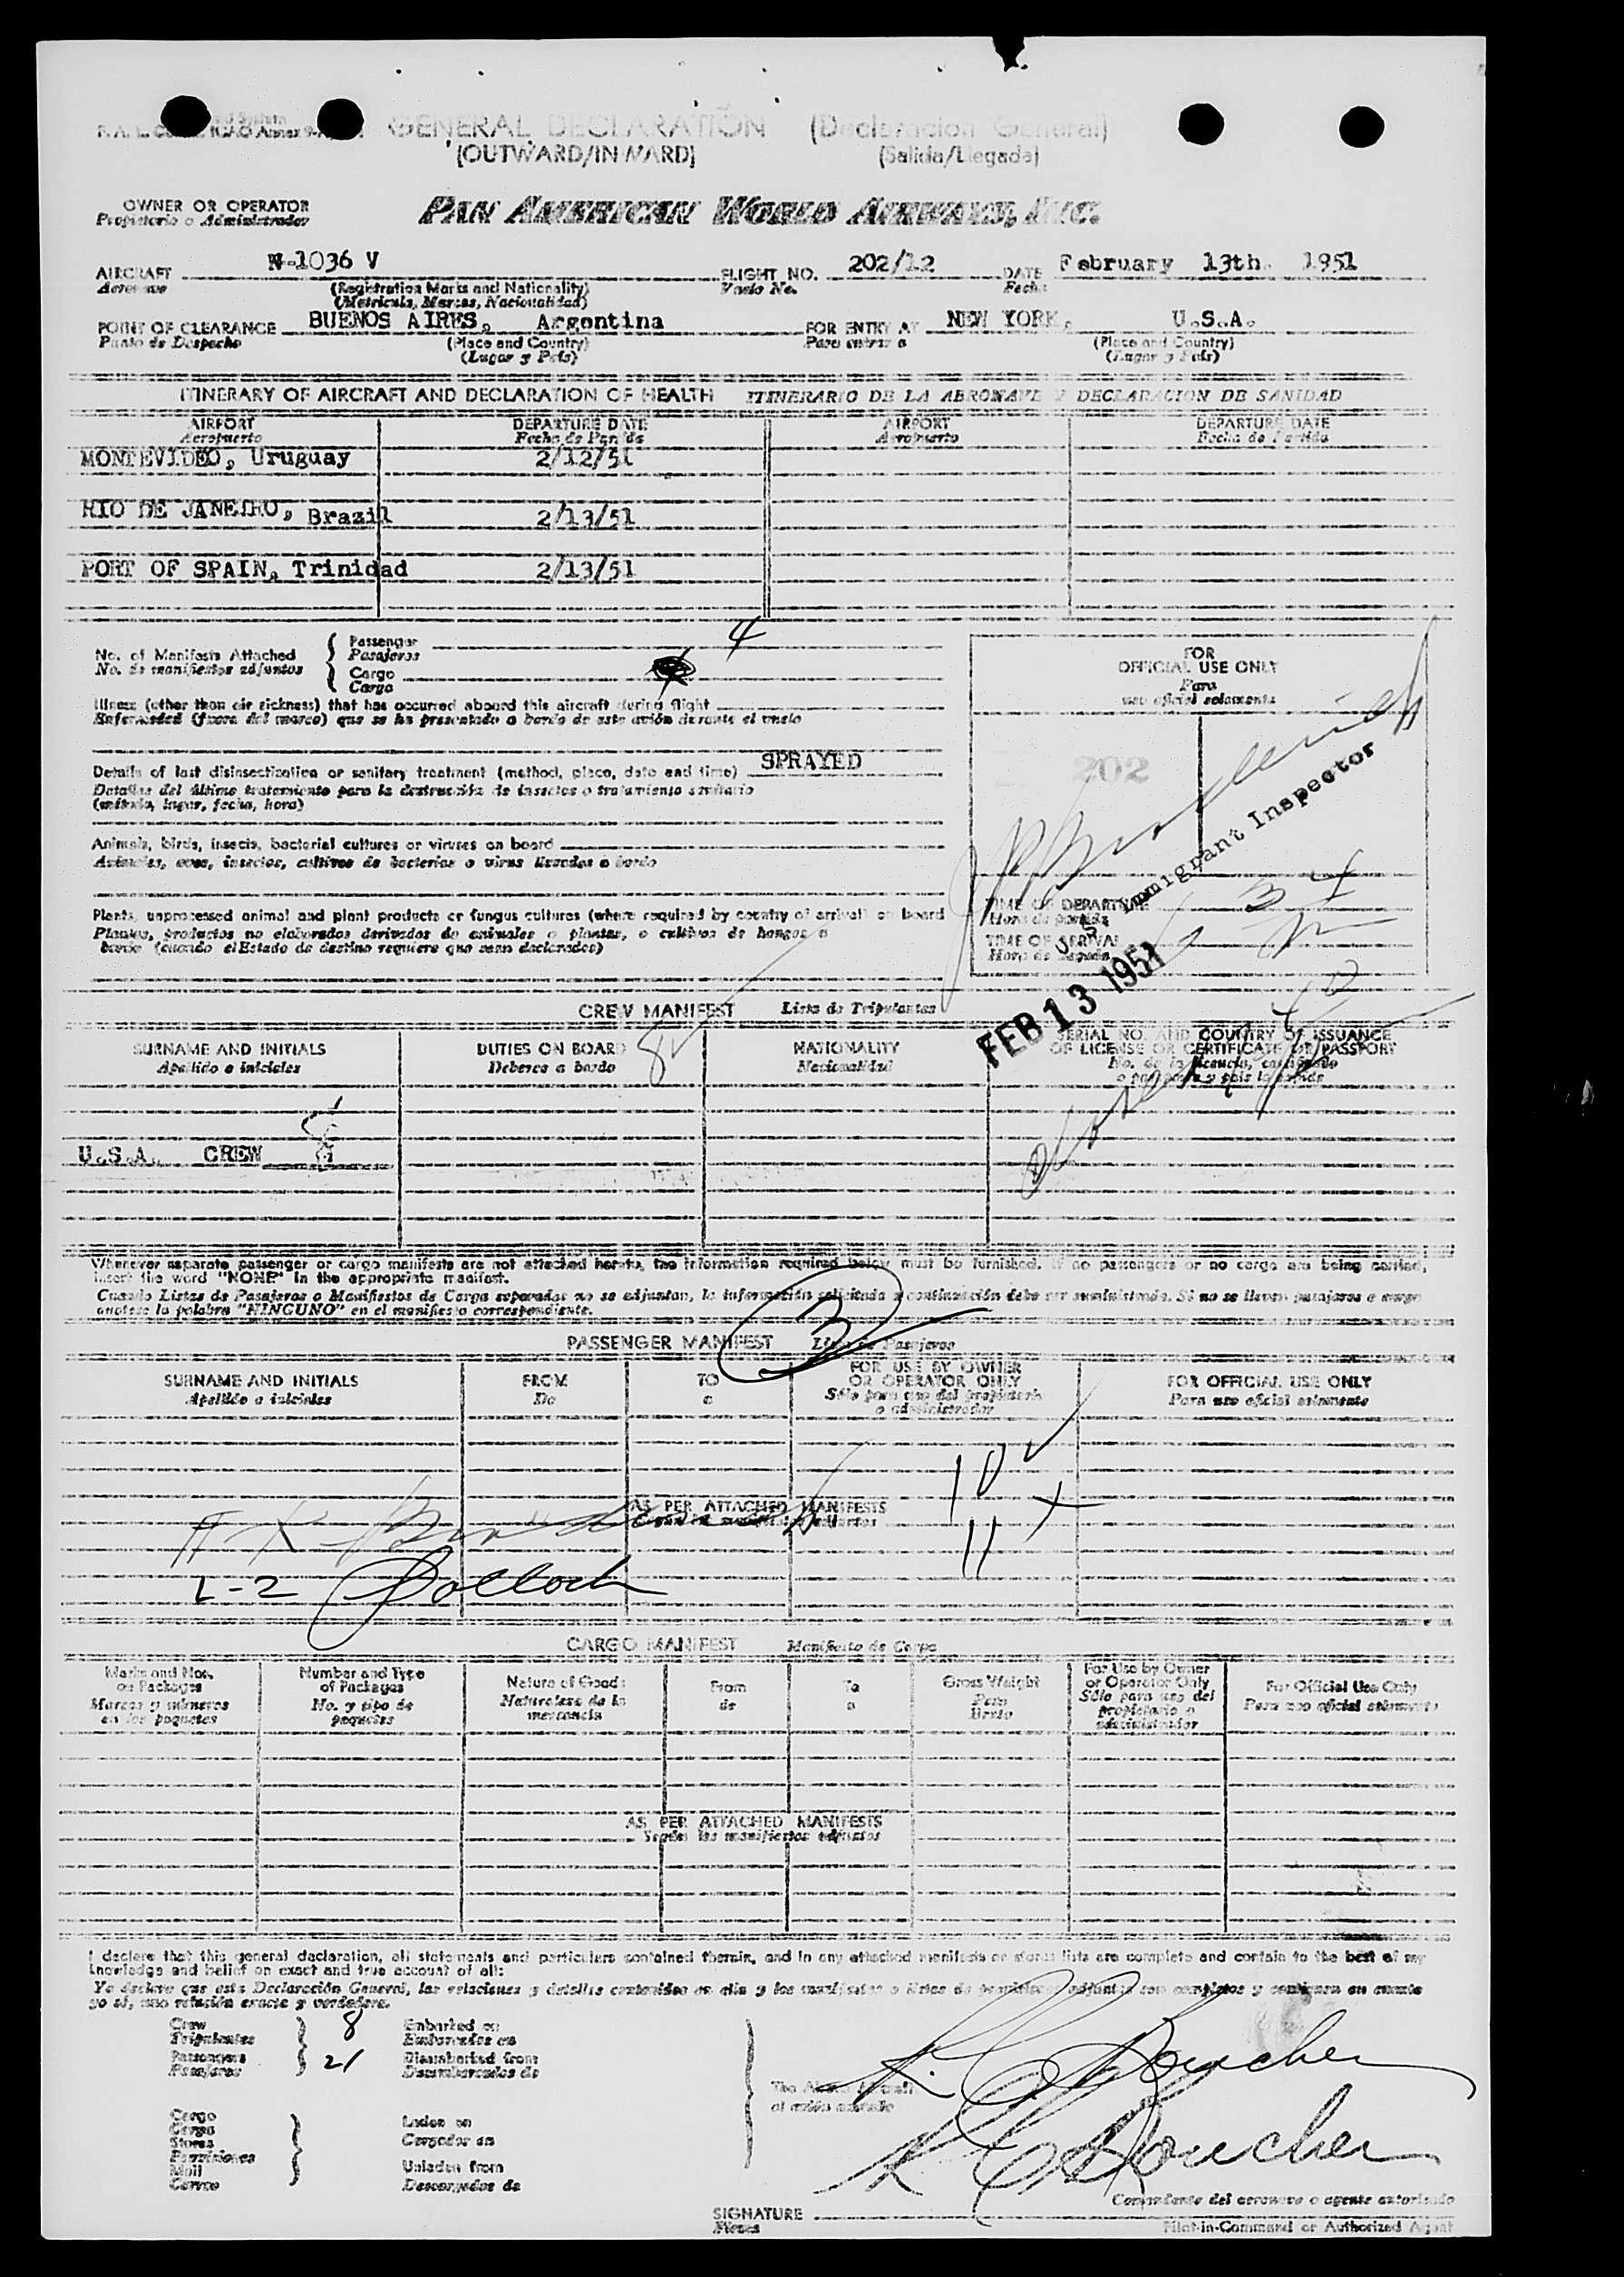 GENERAL DECLARATION (Declaracion General)
(OUTWARD/INWARD) (Salida/Llegada)
OWNER OR OPERATOR
Propietario o Administrador
PAN AMERICAN WORLD AIRWAYS, INC.
AIRCRAFT N-1036 V FLIGHT NO. 202/12 DATE February 13th. 1951
Aeronave (Registration Marks and Nationality) Vuelo No. Fecha
(Matricula, Marcas, Nacionalidad)
POINT OF CLEARANCE BUENOS AIRES, Argentina FOR ENTRY AT NEW YORK, U.S.A.
Punto de Despacho (Place and Country) Para entrar a (Place and Country)
(Lugar y País) (Lugar y País)
ITINERARY OF AIRCRAFT AND DECLARATION OF HEALTH ITINERARIO DE LA AERONAVE Y DECLARACION DE SANIDAD
AIRPORT DEPARTURE DATE AIRPORT DEPARTURE DATE
Aeropuerto Fecha de Partida Aeropuerto Fecha de Partida
MONTEVIDEO, Uruguay 2/12/51
RIO DE JANEIRO, Brazil 2/13/51
PORT OF SPAIN, Trinidad 2/13/51
No. of Manifests Attached Passenger 4
No. de manifiestos adjuntos Pasajeros
Cargo
Carga
Illness (other than air sickness) that has occurred aboard this aircraft during flight
Enfermedad (fuera del mareo) que se ha presentado a bordo de este avión durante el vuelo
Details of last disinsectization or sanitary treatment (method, place, date and time) SPRAYED
Detalles del último tratamiento para la destrucción de insectos o tratamiento sanitario
(método, lugar, fecha, hora)
Animals, birds, insects, bacterial cultures or viruses on board
Animales, aves, insectos, cultivos de bacterias o virus llevados a bordo
Plants, unprocessed animal and plant products or fungus cultures (where required by country of arrival) on board
Plantas, productos no elaborados derivados de animales o plantas, o cultivos de hongos a
bordo (cuando el Estado de destino requiere que sean declarados)
FOR
OFFICIAL USE ONLY
Para
uso oficial solamente
202
TIME OF DEPARTURE
Hora de partida
TIME OF ARRIVAL
Hora de llegada
U.S. Immigrant Inspector
FEB 13 1951
CREW MANIFEST Lista de Tripulantes
SURNAME AND INITIALS DUTIES ON BOARD NATIONALITY SERIAL NO. AND COUNTRY OF ISSUANCE
OF LICENSE OR CERTIFICATE OR PASSPORT
Apellido e iniciales Deberes a bordo Nacionalidad
8
U.S.A. CREW 8
Whenever separate passenger or cargo manifests are not attached hereto, the information required below must be furnished. If no passengers or no cargo are being carried,
insert the word "NONE" in the appropriate manifest.
Cuando Listas de Pasajeros o Manifiestos de Carga separados no se adjuntan, la información solicitada a continuación debe ser suministrada. Si no se llevan pasajeros o carga
anótese la palabra "NINGUNO" en el manifiesto correspondiente.
PASSENGER MANIFEST Lista de Pasajeros
3
SURNAME AND INITIALS FROM TO FOR USE BY OWNER
OR OPERATOR ONLY FOR OFFICIAL USE ONLY
Apellido e iniciales De a Sólo para uso del propietario
o administrador Para uso oficial solamente
10
AS PER ATTACHED MANIFESTS
11
L-2
CARGO MANIFEST Manifiesto de Carga
Marks and Nos.
on Packages
Marcas y números
en los paquetes
Number and Type
of Packages
No. y tipo de
paquetes
Nature of Goods
Naturaleza de la
mercancía
From
de
To
a
Gross Weight
Peso
Bruto
For Use by Owner
or Operator Only
Sólo para uso del
propietario o
administrador
For Official Use Only
Para uso oficial solamente
AS PER ATTACHED MANIFESTS
Según los manifiestos adjuntos
I declare that this general declaration, all statements and particulars contained therein, and in any attached manifests or stores lists are complete and contain to the best of my
knowledge and belief an exact and true account of all:
Crew 8 Embarked on
Tripulantes Embarcados en
Passengers 21 Disembarked from
Pasajeros Desembarcados de
The Above Aircraft
Cargo Laden on
Carga Cargados en
Stores
Provisiones
Mail Unladen from
Correo Descargados de
SIGNATURE
Firma
Comandante del aeronave o agente autorizado
Pilot-in-Command or Authorized Agent